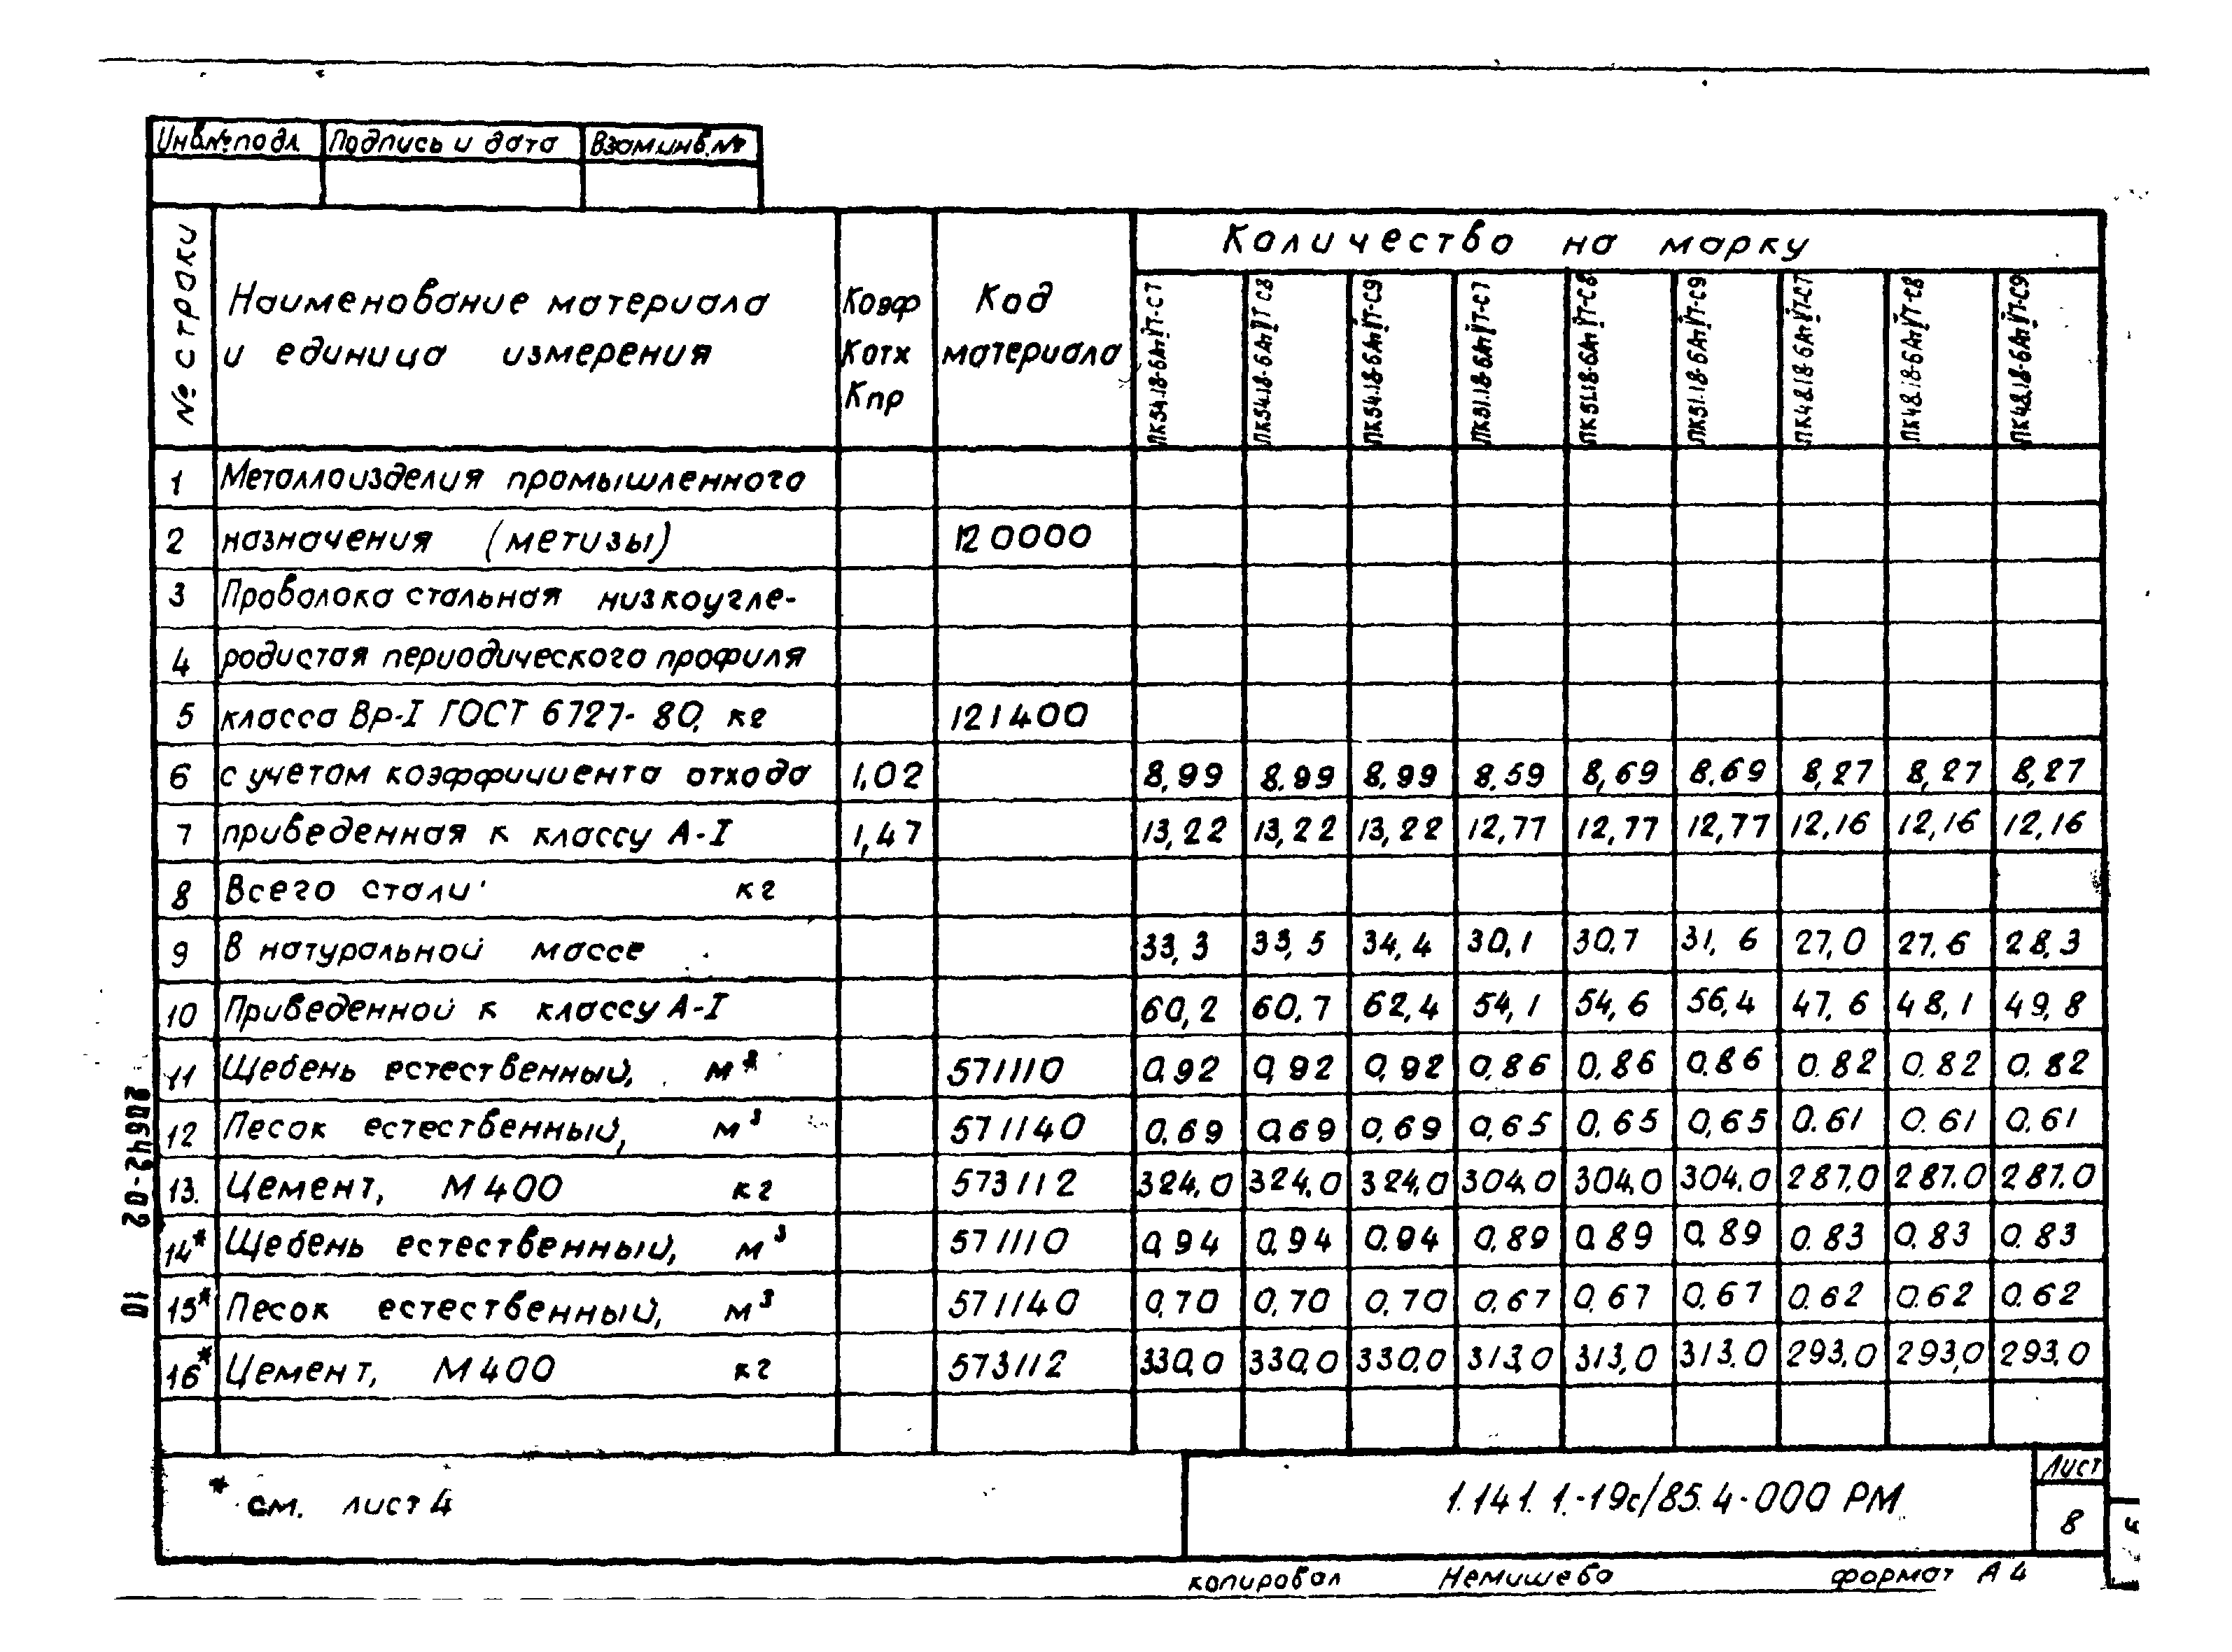 Инв.№ подл Подпись и дата Взам.инв.№
№ строки
Наименование материала
и единица измерения
Коэф
Котх
Кпр
Код
материала
Количество на марку
ПК54.18-6АтVТ-С7 ПК54.18-6АтVТ С8 ПК54.18-6АтVТ-С9 ПК51.18-6АтVТ-С7 ПК51.18-6АтVТ-С8 ПК51.18-6АтVТ-С9 ПК48.18-6АтVТ-С7 ПК48.18-6АтVТ-С8 ПК48.18-6АтVТ-С9
1 Металлоизделия промышленного
2 назначения (метизы) 120000
3 Проволока стальная низкоугле-
4 родистая периодического профиля
5 класса Вр-I ГОСТ 6727-80, кг 121400
6 с учетом коэффициента отхода 1,02 8,99 8.99 8,99 8.59 8,69 8.69 8,27 8,27 8,27
7 приведенная к классу А-I 1,47 13,22 13,22 13,22 12,77 12,77 12,77 12,16 12,16 12,16
8 Всего стали кг
9 В натуральной массе 33,3 33,5 34,4 30,1 30,7 31,6 27,0 27,6 28,3
10 Приведенной к классу А-I 60,2 60,7 62,4 54,1 54,6 56,4 47,6 48,1 49,8
11 Щебень естественный, м³ 571110 0,92 0,92 0,92 0,86 0,86 0,86 0.82 0.82 0.82
12 Песок естественный, м³ 571140 0,69 0,69 0,69 0,65 0,65 0,65 0.61 0.61 0.61
13. Цемент, М400 кг 573112 324,0 324,0 324,0 304,0 304,0 304.0 287.0 287.0 287.0
14* Щебень естественный, м³ 571110 0,94 0.94 0.94 0,89 0.89 0.89 0.83 0.83 0.83
15* Песок естественный, м³ 571140 0,70 0,70 0,70 0,67 0,67 0,67 0.62 0.62 0.62
16* Цемент, М400 кг 573112 330,0 330,0 330,0 313,0 313,0 313.0 293,0 293,0 293,0
20642-02 10
* см. лист 4
1.141.1-19с/85.4-000 РМ
Лист
8
копировал Немишева формат А4